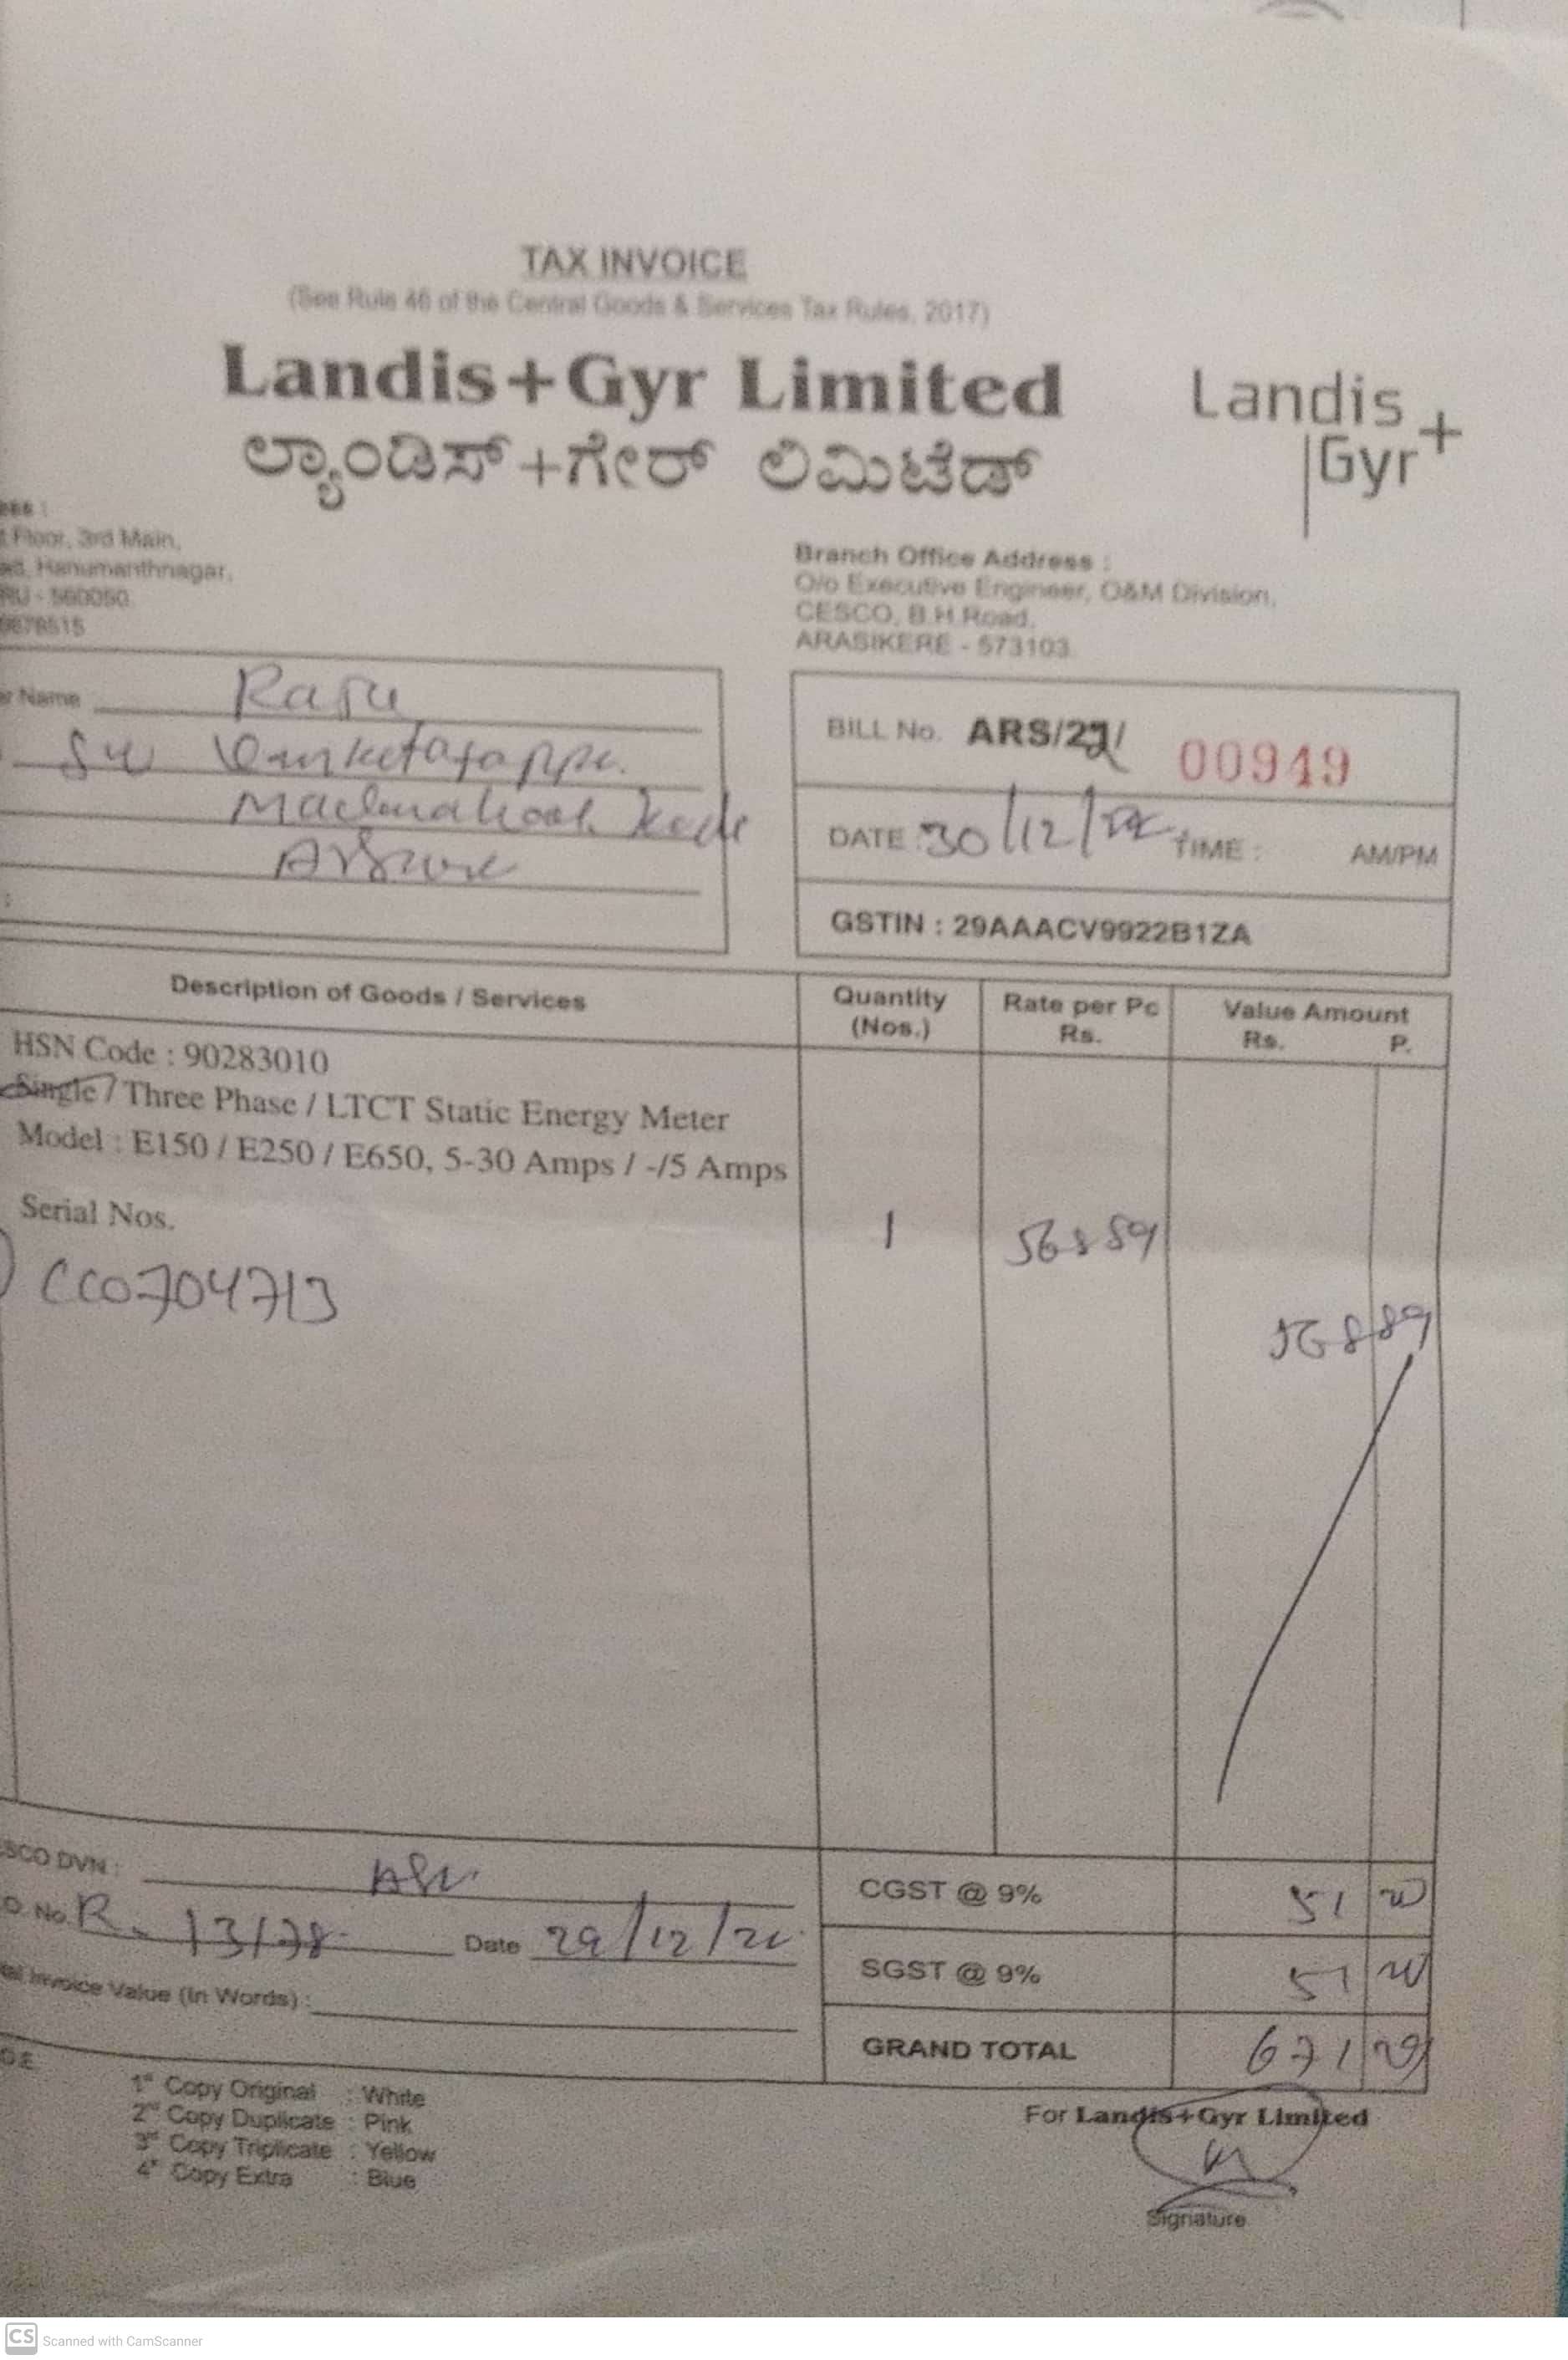 TAX INVOICE
(See Rule 46 of the Central Goods & Services Tax Rules, 2017)
Landis+Gyr Limited
ಲ್ಯಾಂಡಿಸ್+ಗೇರ್ ಲಿಮಿಟೆಡ್
Landis
Gyr+
Floor, 3rd Main,
Hanumanthnagar,
RU - 560050
Branch Office Address :
O/o Executive Engineer, O&M Division,
CESCO, B.H.Road,
ARASIKERE - 573103
Name Raju
BILL No. ARS/22/ 00949
DATE : 30/12/ TIME : AM/PM
GSTIN : 29AAACV9922B1ZA
Description of Goods / Services
Quantity (Nos.)
Rate per Pc Rs.
Value Amount
Rs. P.
HSN Code : 90283010
Single / Three Phase / LTCT Static Energy Meter
Model : E150 / E250 / E650, 5-30 Amps / -/5 Amps
Serial Nos.
CC0704713
1
568 89
568 89
SCO DVN :
No. R. Date 29/12/
Invoice Value (In Words) :
CGST @ 9% 51 20
SGST @ 9% 51 20
GRAND TOTAL 671 29
1st Copy Original : White
2nd Copy Duplicate : Pink
3rd Copy Triplicate : Yellow
4th Copy Extra : Blue
For Landis+Gyr Limited
Signature
CS Scanned with CamScanner